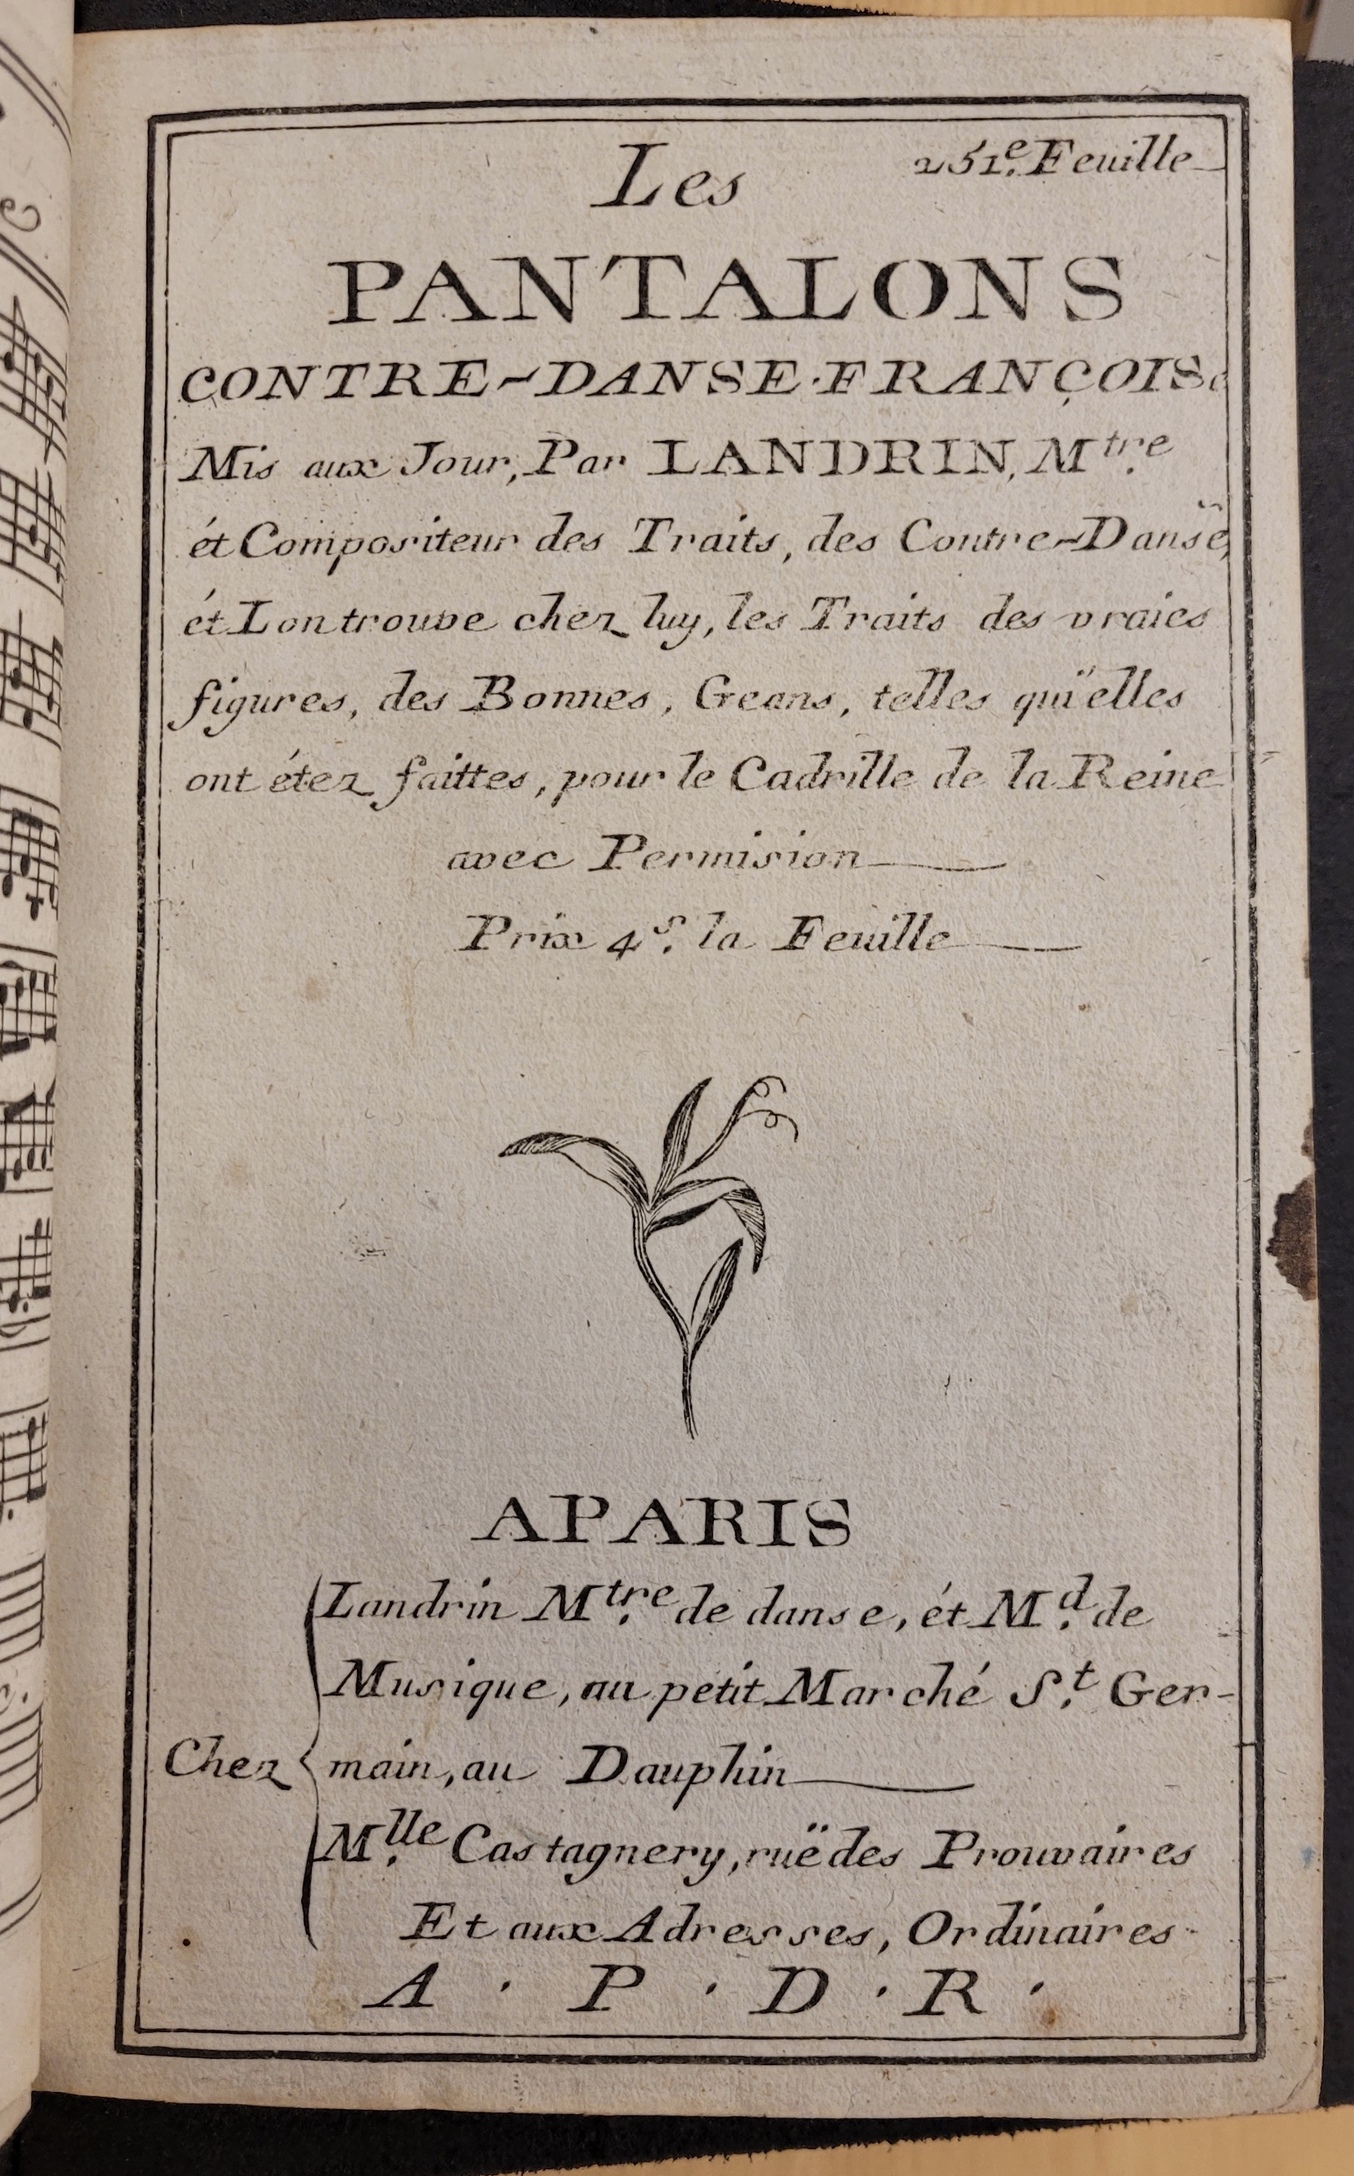 251.e Feuille
Les
PANTALONS
CONTRE-DANSE·FRANÇOISe
Mis aux Jour, Par LANDRIN, M.tre
ét Compositeur des Traits, des Contre-Danse,
ét Lontrouve chez luy, les Traits des vraies
figures, des Bonnes, Geans, telles qüi'elles
ont étez faittes, pour le Cadrille de la Reine
avec Permision
Prix 4.s la Feuille
APARIS
Landrin M.tre de danse, ét M.d de
Musique, au petit Marché S.t Ger-
Chez main, au Dauphin
M.lle Castagnery, ruë des Prouvaires
Et aux Adresses, Ordinaires
A · P · D · R ·